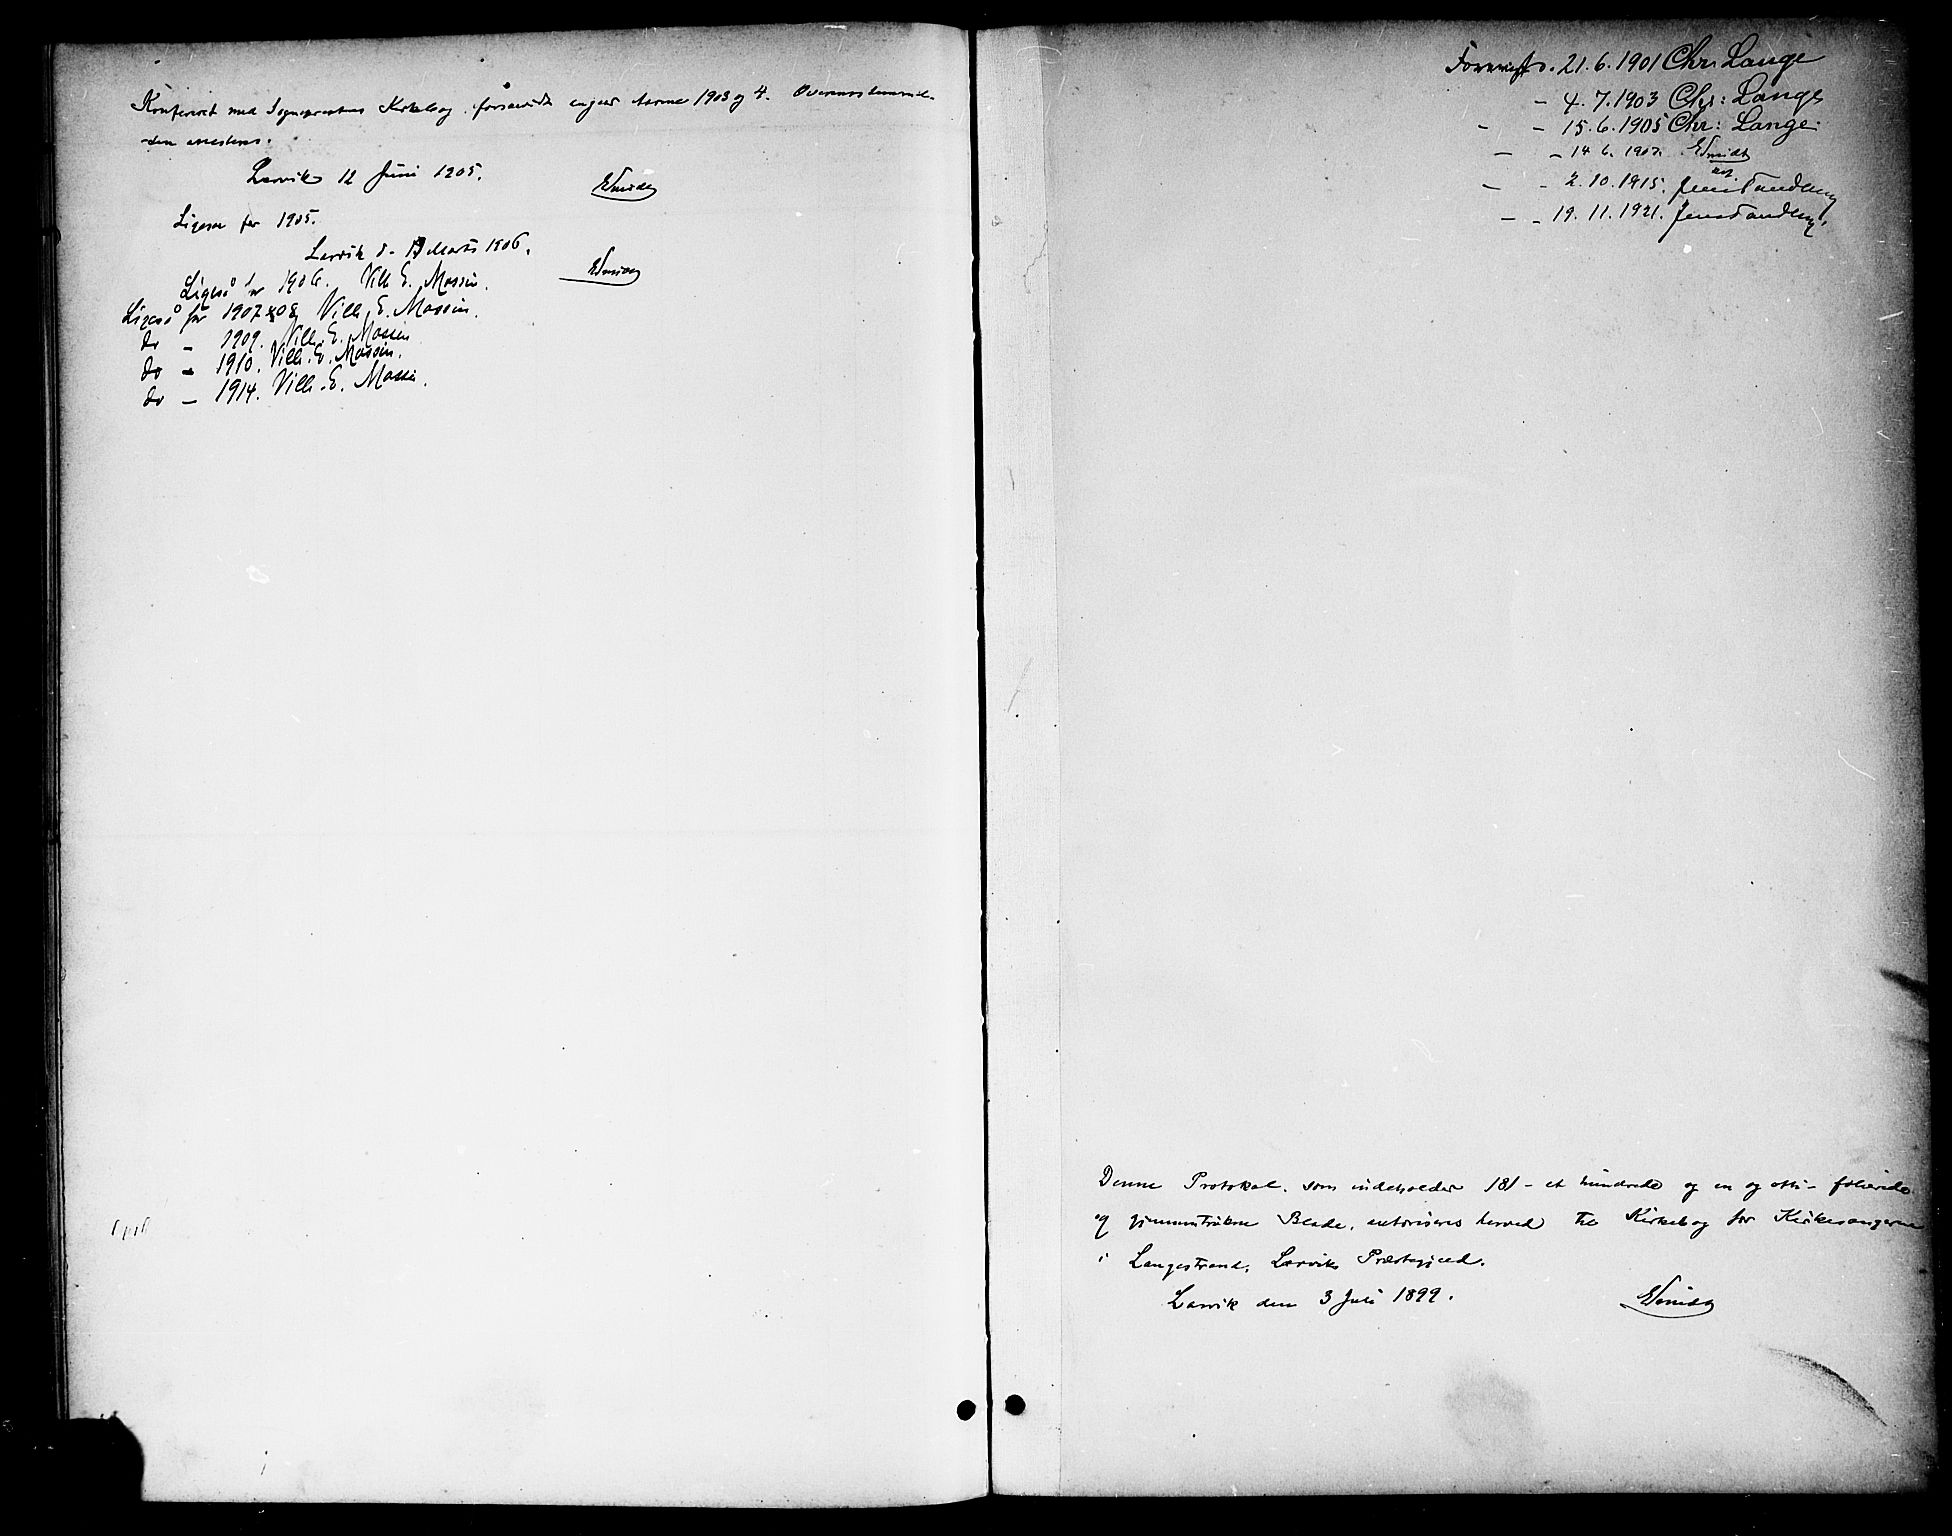 Konfereret med Sognepræstens Kirkebog forsaavidt angaar Aarene 1903 og 4. Overensstemmel-
sen attesteres.
Larvik 12 Juni 1905.
ESmidt
Ligesaa for 1905.
Larvik d. 19 Marts 1906.
ESmidt
Ligeså for 1906. Vilh E. Massin.
Ligeså for 1907 & 08 Vilh. E. Massin.
do - 1909. Vilh. E. Massin
do - 1910. Vilh. E. Massin.
do - 1914. Vilh. E. Massin.
Forevist d. 21.6.1901 Chr: Lange
- 4.7.1903 Chr: Lange
- - 15.6.1905 Chr: Lange
- - 14.6.1907. ESmidt
- - 2.10.1915. Jens Tandberg
- - 19.11.1921. Jens Tandberg.
Denne Protokol, som indeholder 181 - et hundrede og en og otti - folierede
og gjennemtrukne Blade, autoriseres herved til Kirkebog for Kirkesangeren
i Langestrand, Larviks Præstegjæld.
Larvik den 3 Juli 1899.
ESmidt